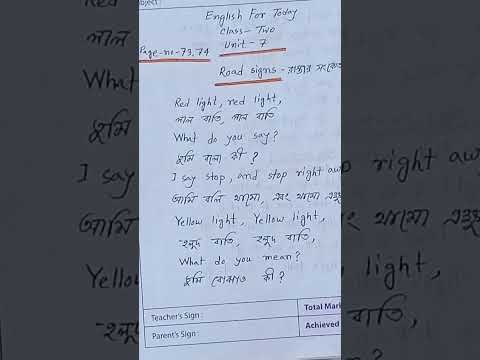 English For Today
Class- Two
Unit - 7
Page-no-73,74
Road signs - রাস্তার সংকেত
Red light, red light,
লাল বাতি, লাল বাতি
What do you say?
তুমি বলো কী ?
I say stop, and stop right aw
আমি বলি থামো, এবং থামো এক্ষু
Yellow light, Yellow light,
হলুদ বাতি, হলুদ বাতি,
What do you mean?
তুমি বোঝাও কী ?
Teacher's Sign :
Total Mar
Parent's Sign :
Achieved